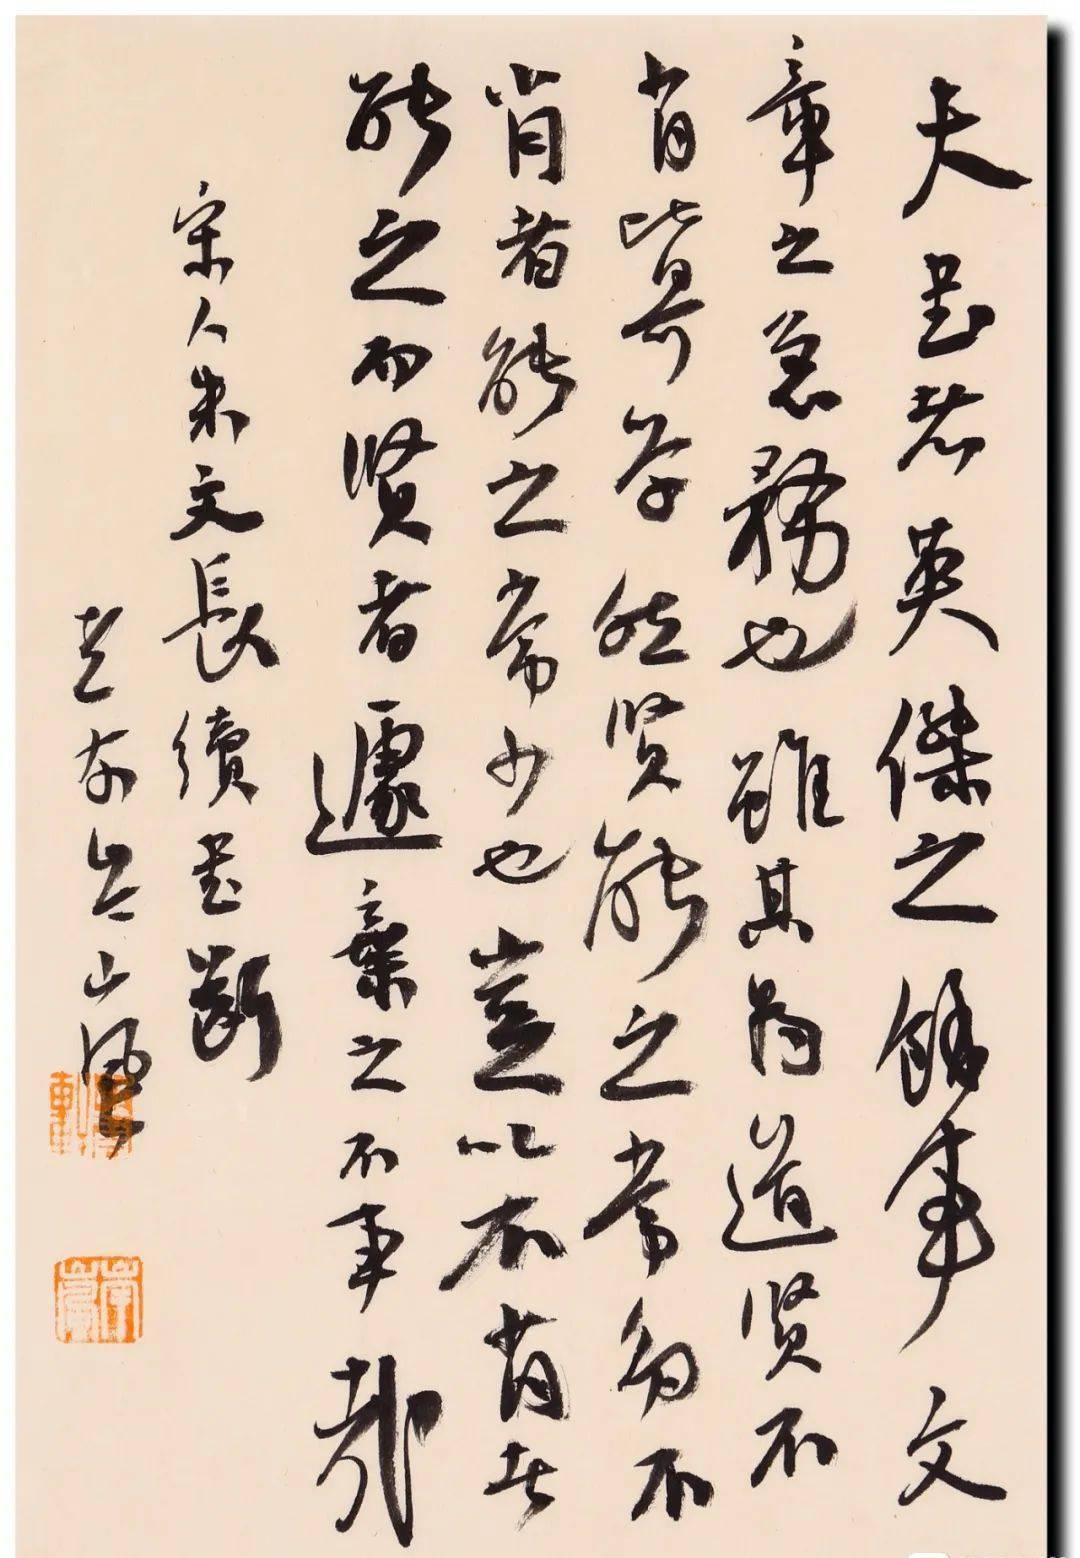 夫書者英傑之餘事文
章之急務也雖其為道賢不
肖皆可學然賢能之常多不
肖者能之常少也豈以不肖者
能之而賢者遽棄之不事哉
宋人朱文長續書斷
山